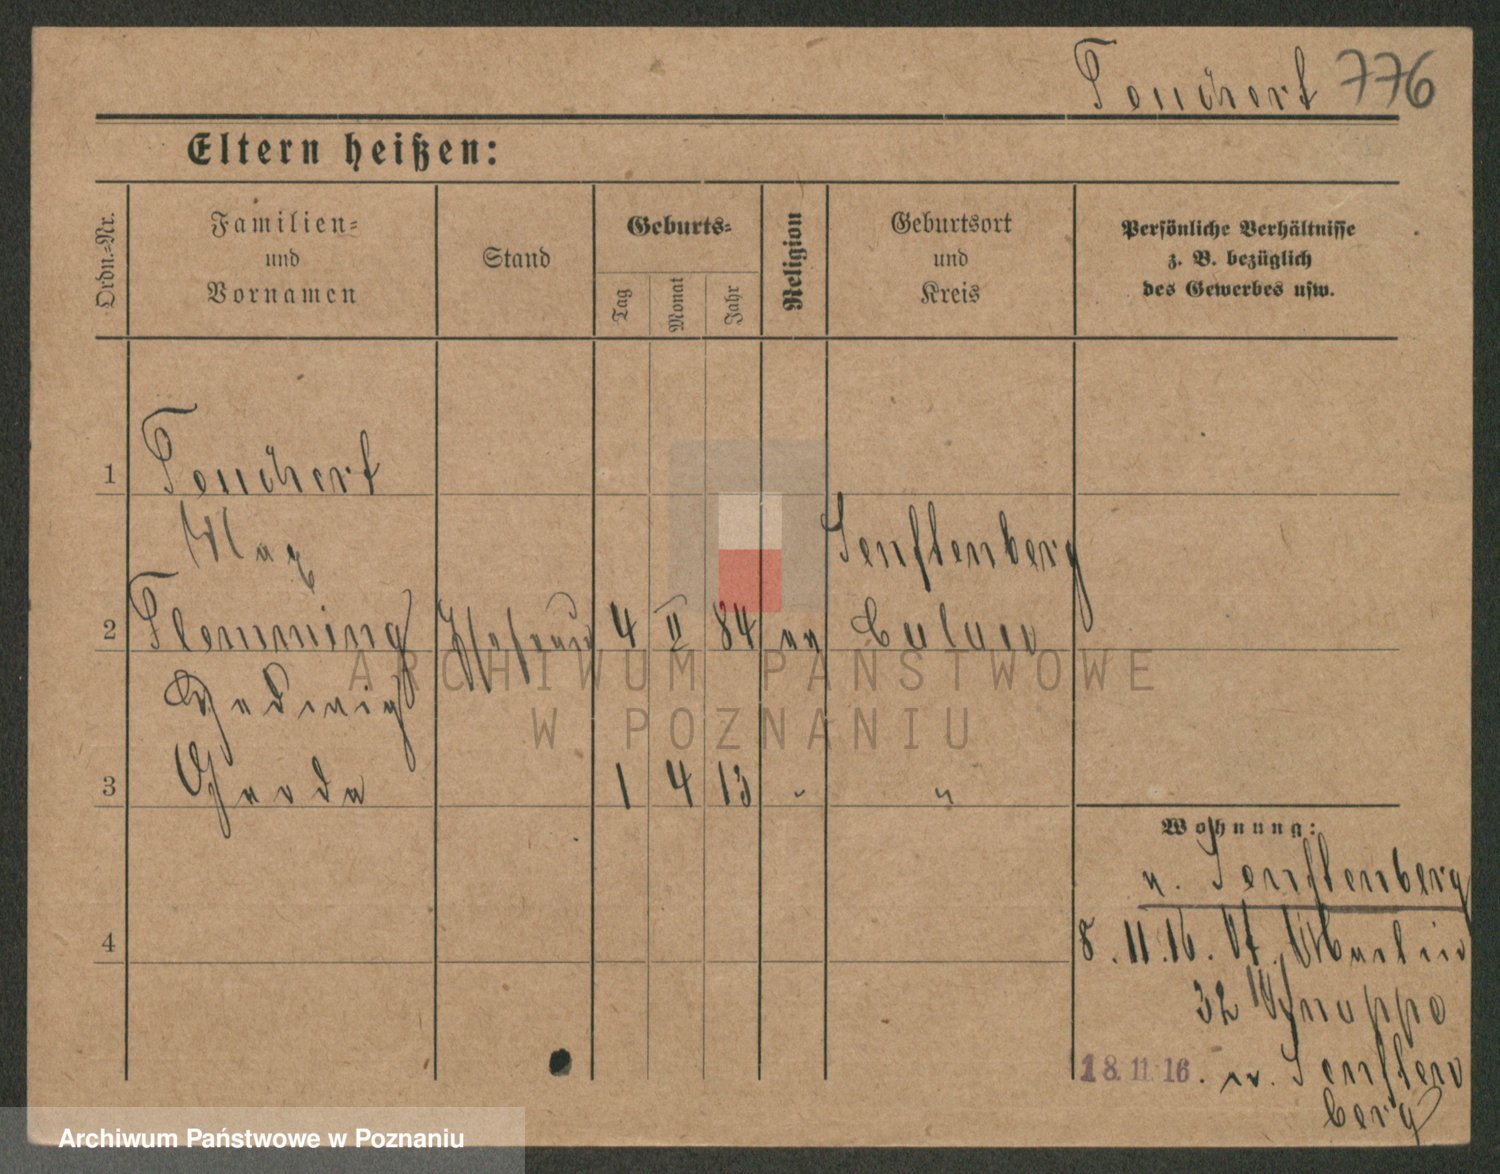 Teuchert 776
Eltern heißen:
Ordn.-Nr.
Familien-
und
Vornamen
Stand
Geburts-
Tag
Monat
Jahr
Religion
Geburtsort
und
Kreis
Persönliche Verhältnisse
z. B. bezüglich
des Gewerbes usw.
1 Teuchert
Max Senftenberg
2 Flemming 4 II 84 Calau
Hedwig
3 Gerda 1 4 13 " "
Wohnung:
n. Senftenberg
4 8.11.16. St. Martin
32
18.11.16. n. Senften
berg
ARCHIWUM PAŃSTWOWE
W POZNANIU
Archiwum Państwowe w Poznaniu